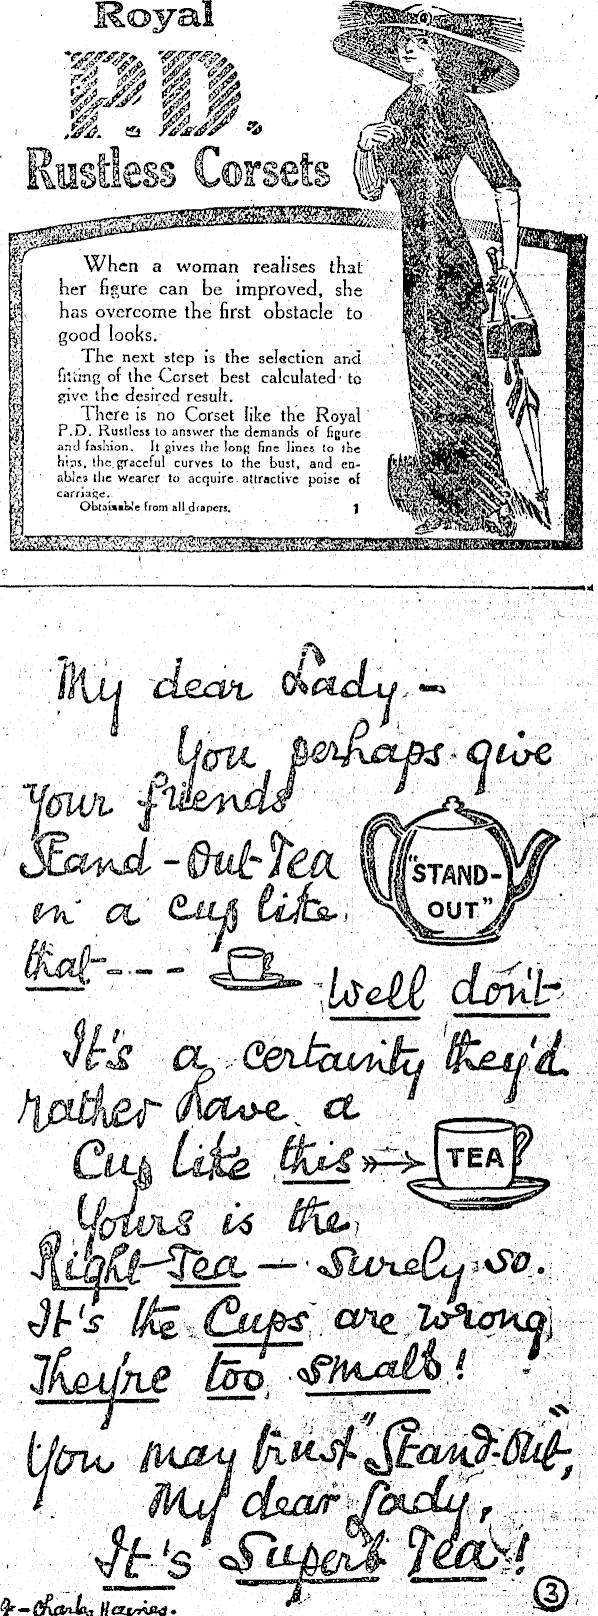 Royal
P.D.
Rustless Corsets
When a woman realises that
her figure can be improved, she
has overcome the first obstacle to
good looks.
The next step is the selection and
fitting of the Corset best calculated to
give the desired result.
There is no Corset like the Royal
P.D. Rustless to answer the demands of figure
and fashion. It gives the long fine lines to the
hips, the graceful curves to the bust, and en-
ables the wearer to acquire attractive poise of
carriage.
Obtainable from all drapers.
1
My dear Lady -
You perhaps give
your friends
Stand-Out-Tea
in a cup like
that - - - -
"STAND-
OUT"
Well don't
It's a certainty they'd
rather have a
Cup like this
TEA
Yours is the
Right-Tea - surely so.
It's the Cups are wrong
They're too small!
You may trust "Stand-Out",
My dear Lady,
It's Superb Tea!
3
Charles Haines.